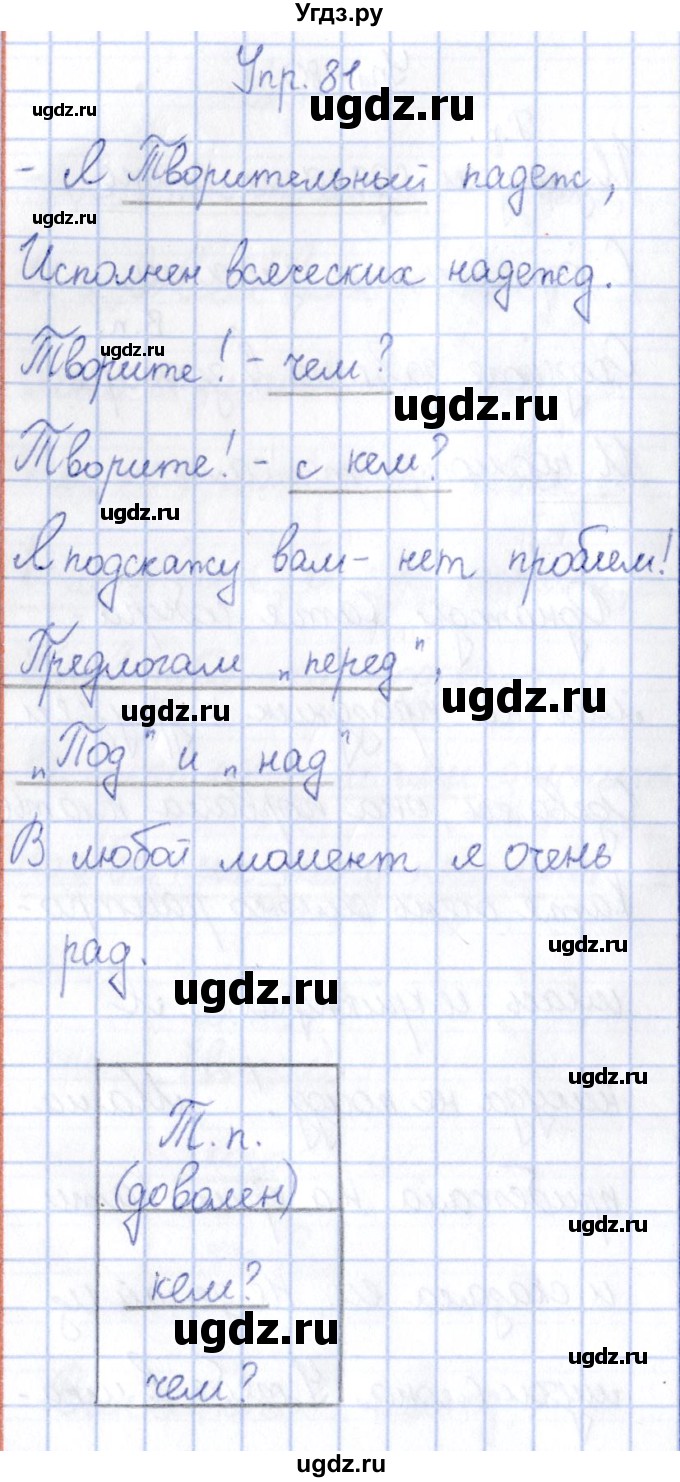 Угдз.ру
Упр. 81.
ugdz.ru
ugdz.ru
- Я Творительный падеж,
ugdz.ru
Исполнен всяческих надежд.
ugdz.ru
Творите! - чем?
ugdz.ru
Творите! - с кем?
ugdz.ru
Я подскажу вам - нет проблем!
Предлогам „перед",
ugdz.ru
ugdz.ru
„Под" и „над"
В любой момент я очень
рад.
ugdz.ru
ugdz.ru
ugdz.ru
Т. п.
(доволен)
ugdz.ru
кем?
ugdz.ru
ugdz.ru
чем?
ugdz.ru